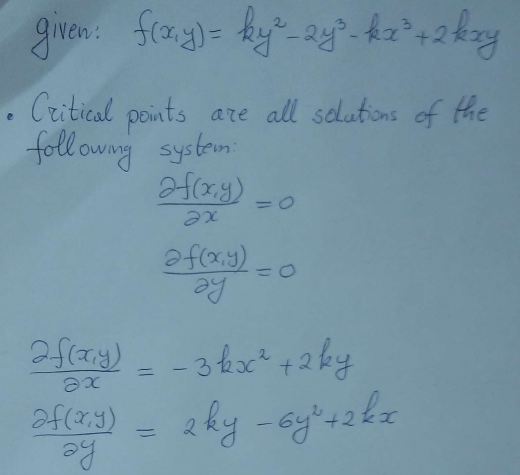 given: f(x,y) = ky² - 2y³ - kx³ + 2kxy
• Critical points are all solutions of the
following system:
∂f(x,y)/∂x = 0
∂f(x,y)/∂y = 0
∂f(x,y)/∂x = -3kx² + 2ky
∂f(x,y)/∂y = 2ky - 6y² + 2kx